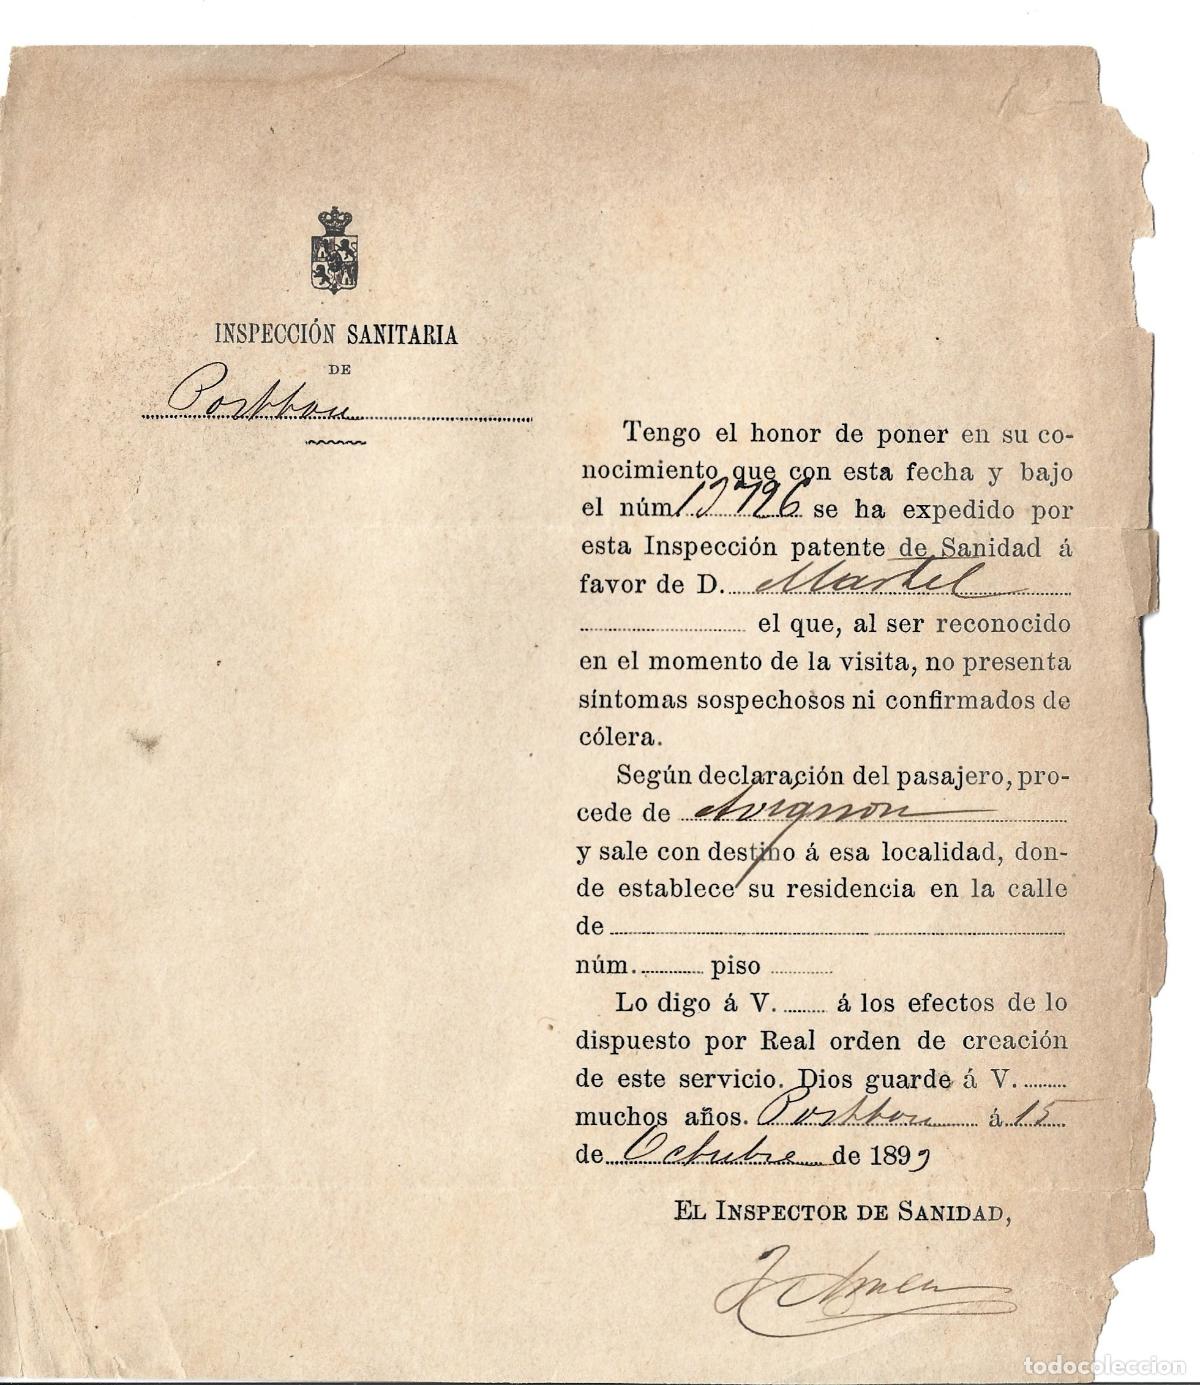 INSPECCIÓN SANITARIA
DE
Portbou
Tengo el honor de poner en su co-
nocimiento que con esta fecha y bajo
el núm se ha expedido por
esta Inspección patente de Sanidad á
favor de D. Martel
el que, al ser reconocido
en el momento de la visita, no presenta
síntomas sospechosos ni confirmados de
cólera.
Según declaración del pasajero, pro-
cede de Avignon
y sale con destino á esa localidad, don-
de establece su residencia en la calle
de
núm. piso
Lo digo á V. á los efectos de lo
dispuesto por Real orden de creación
de este servicio. Dios guarde á V.
muchos años. Portbou á 15
de Octubre de 189
EL INSPECTOR DE SANIDAD,
todocoleccion